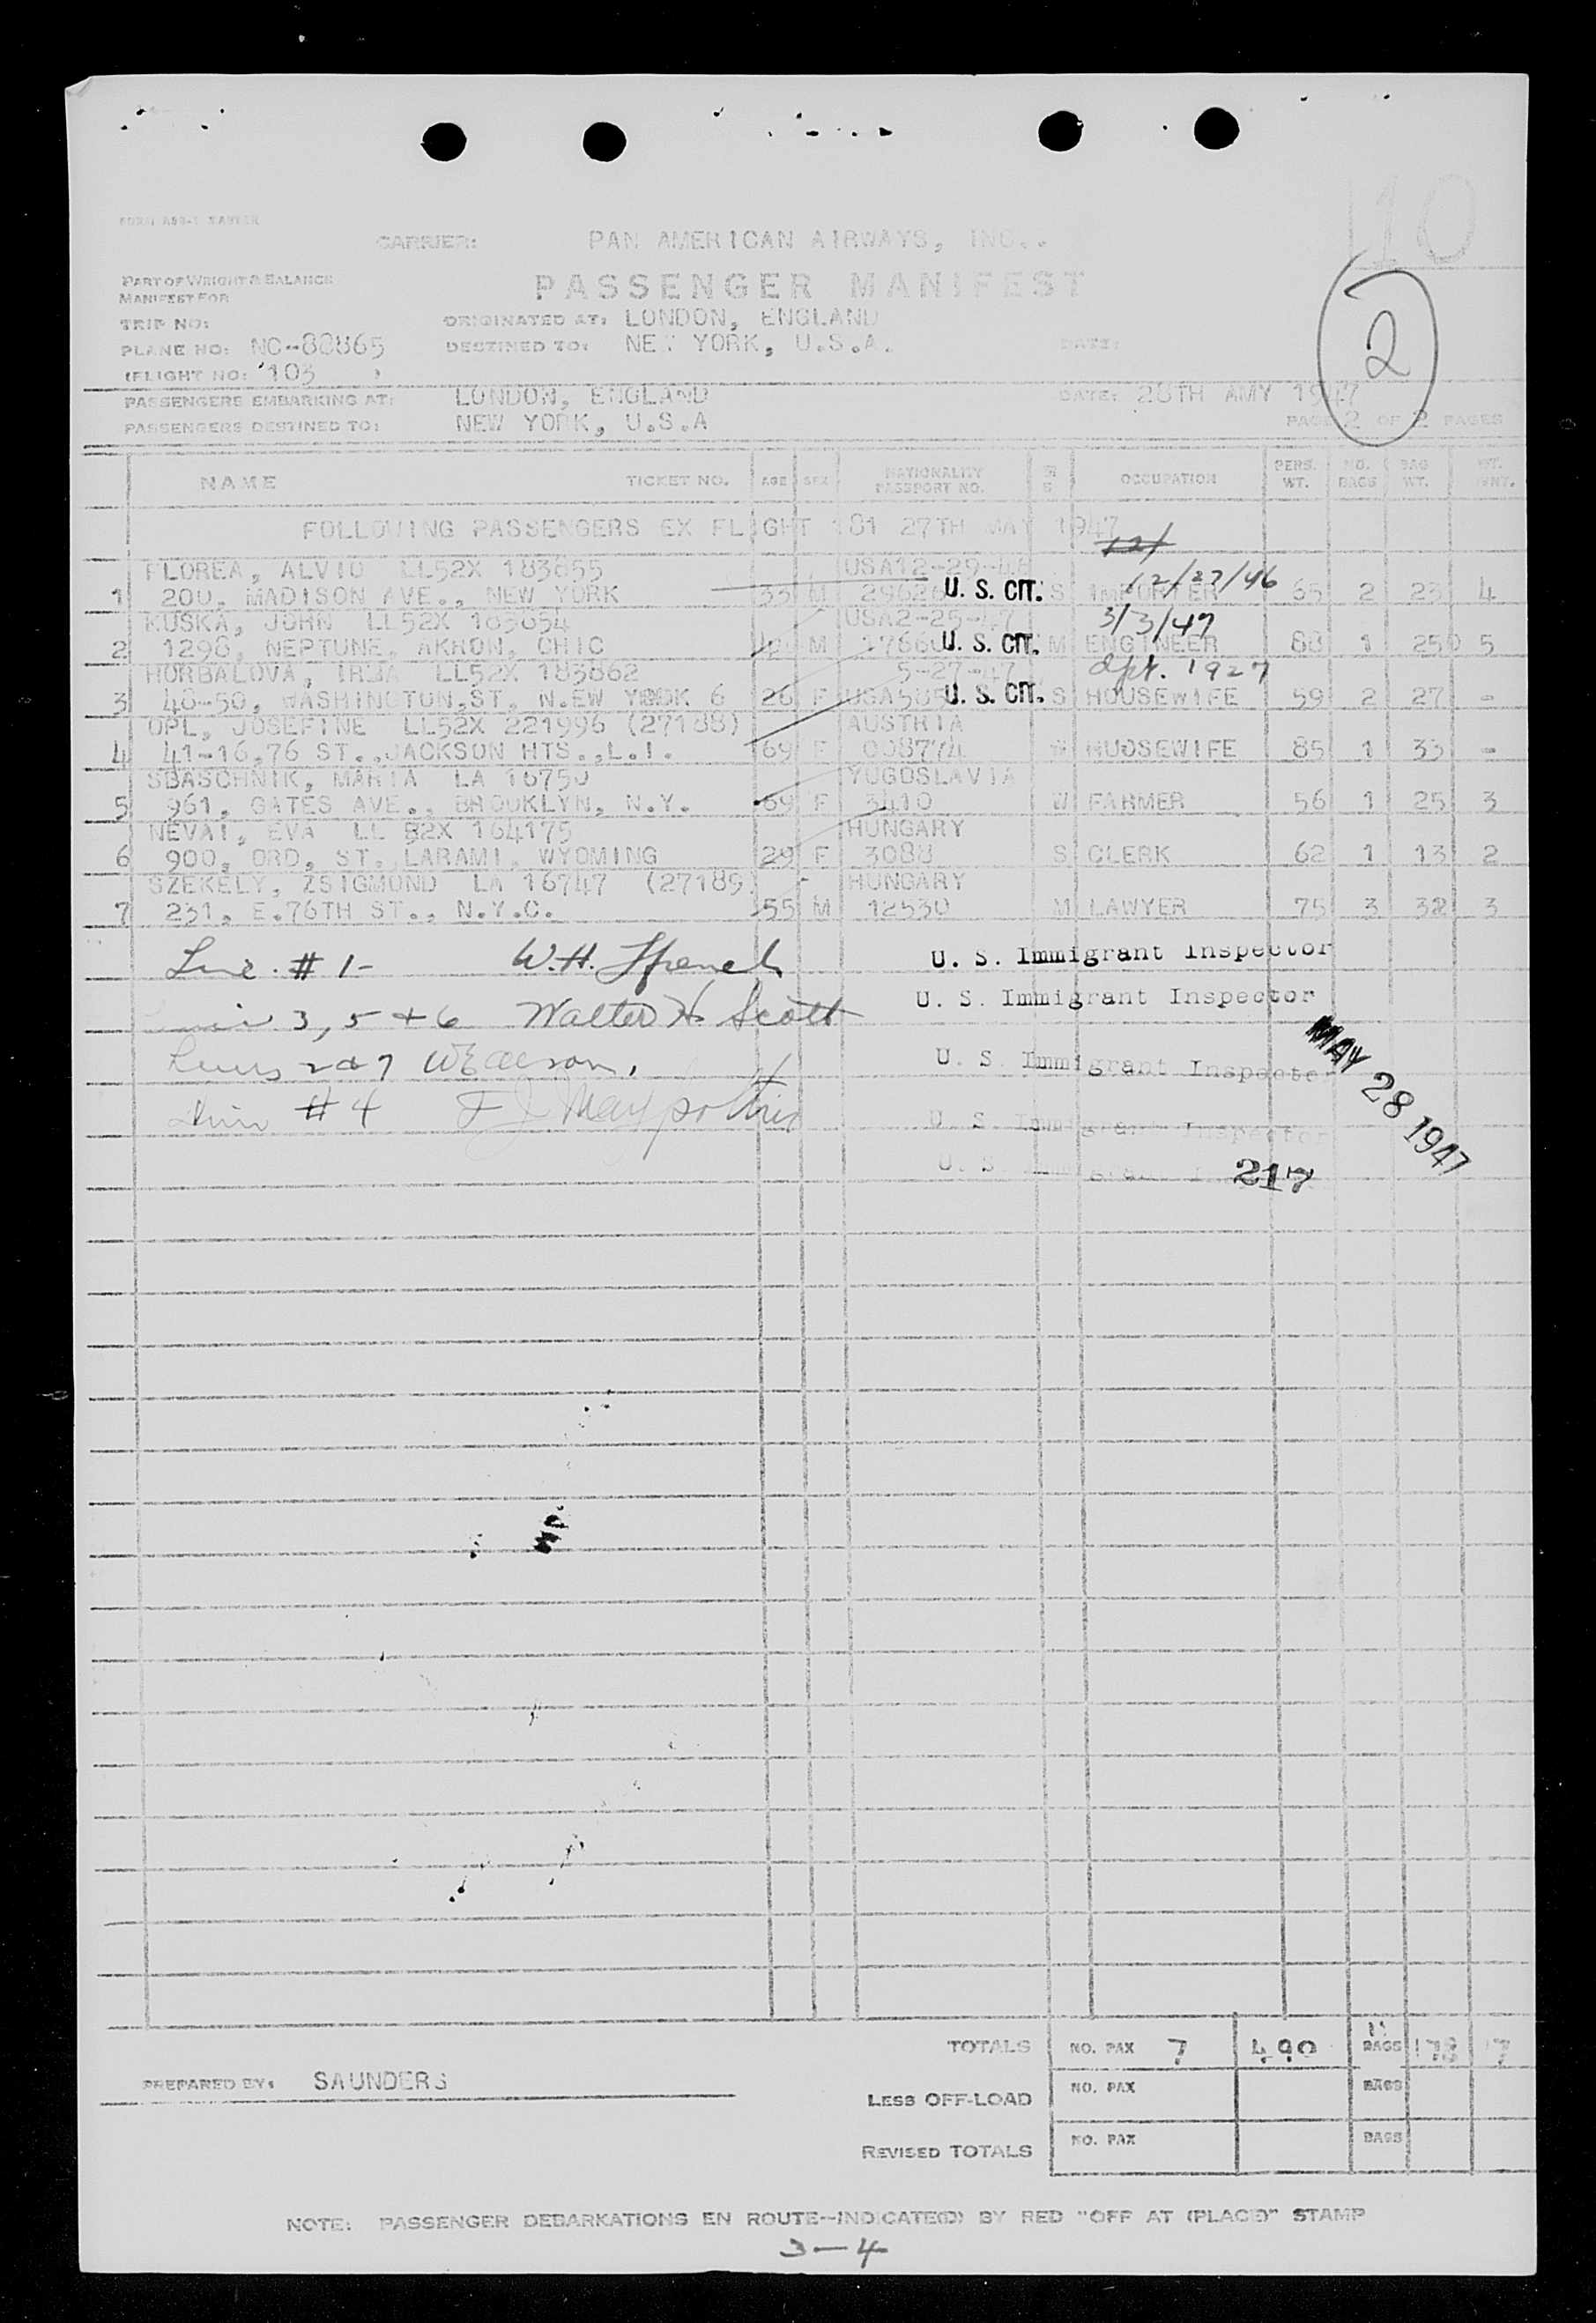 110
CARRIER: PAN AMERICAN AIRWAYS, INC..
PART OF WEIGHT & BALANCE
MANIFEST FOR
PASSENGER MANIFEST
2
TRIP NO: ORIGINATED AT: LONDON, ENGLAND
PLANE NO: NC-88865 DESTINED TO: NEW YORK, U.S.A. DATE:
(FLIGHT NO: 103 )
PASSENGERS EMBARKING AT: LONDON, ENGLAND DATE: 28TH AMY 1947
PASSENGERS DESTINED TO: NEW YORK, U.S.A PAGE 2 OF 2 PAGES
NAME TICKET NO. AGE SEX NATIONALITY PASSPORT NO. OCCUPATION PERS. WT. NO. BAGS BAG WT. WT.
FOLLOWING PASSENGERS EX FLIGHT 181 27TH MAY 1947
12/
FLOREA, ALVIO LL52X 183855 USA12-29-
12/27/46
1 200, MADISON AVE., NEW YORK 33 M U. S. CIT. S IMPORTER 65 2 23 4
KUSKA, JOHN LL52X USA2-25-47 3/3/47
2 1298, NEPTUNE, AKRON, OHIO M U. S. CIT. M ENGINEER 88 1 250 5
HORBALOVA, LL52X 183862 5-27-47 1927
3 40-50, WASHINGTON,ST, N.EW YORK 6 26 F U. S. CIT. S HOUSEWIFE 59 2 27 -
OPL, JOSEFINE LL52X 221996 (27188) AUSTRIA
4 41-16,76 ST.,JACKSON HTS.,L.I. 69 F W HUOSEWIFE 85 1 33 -
SBASCHNIK, MARIA LA 16750 YUGOSLAVIA
5 961, GATES AVE., BROOKLYN, N.Y. 69 F 3410 W FARMER 56 1 25 3
NEVAI, EVA LL 52X 164175 HUNGARY
6 900, ORD, ST, LARAMI, WYOMING 29 F 3088 S CLERK 62 1 13 2
SZEKELY, ZSIGMOND LA 16747 (27189) HUNGARY
7 231, E.76TH ST., N.Y.C. 55 M 12530 M LAWYER 75 3 32 3
Line #1- W.H. U. S. Immigrant Inspector
3, 5 + 6 Walter H Scott U. S. Immigrant Inspector
Lines 2 & 7 U. S. Immigrant Inspector
MAY 28 1947
#4 U. S. Immigrant Inspector
U. S. 217
TOTALS NO. PAX 7 490 11 BAGS 178 17
PREPARED BY: SAUNDERS
LESS OFF-LOAD NO. PAX BAGS
REVISED TOTALS NO. PAX BAGS
NOTE: PASSENGER DEBARKATIONS EN ROUTE--INDICATE(D) BY RED "OFF AT (PLACE)" STAMP
3-4